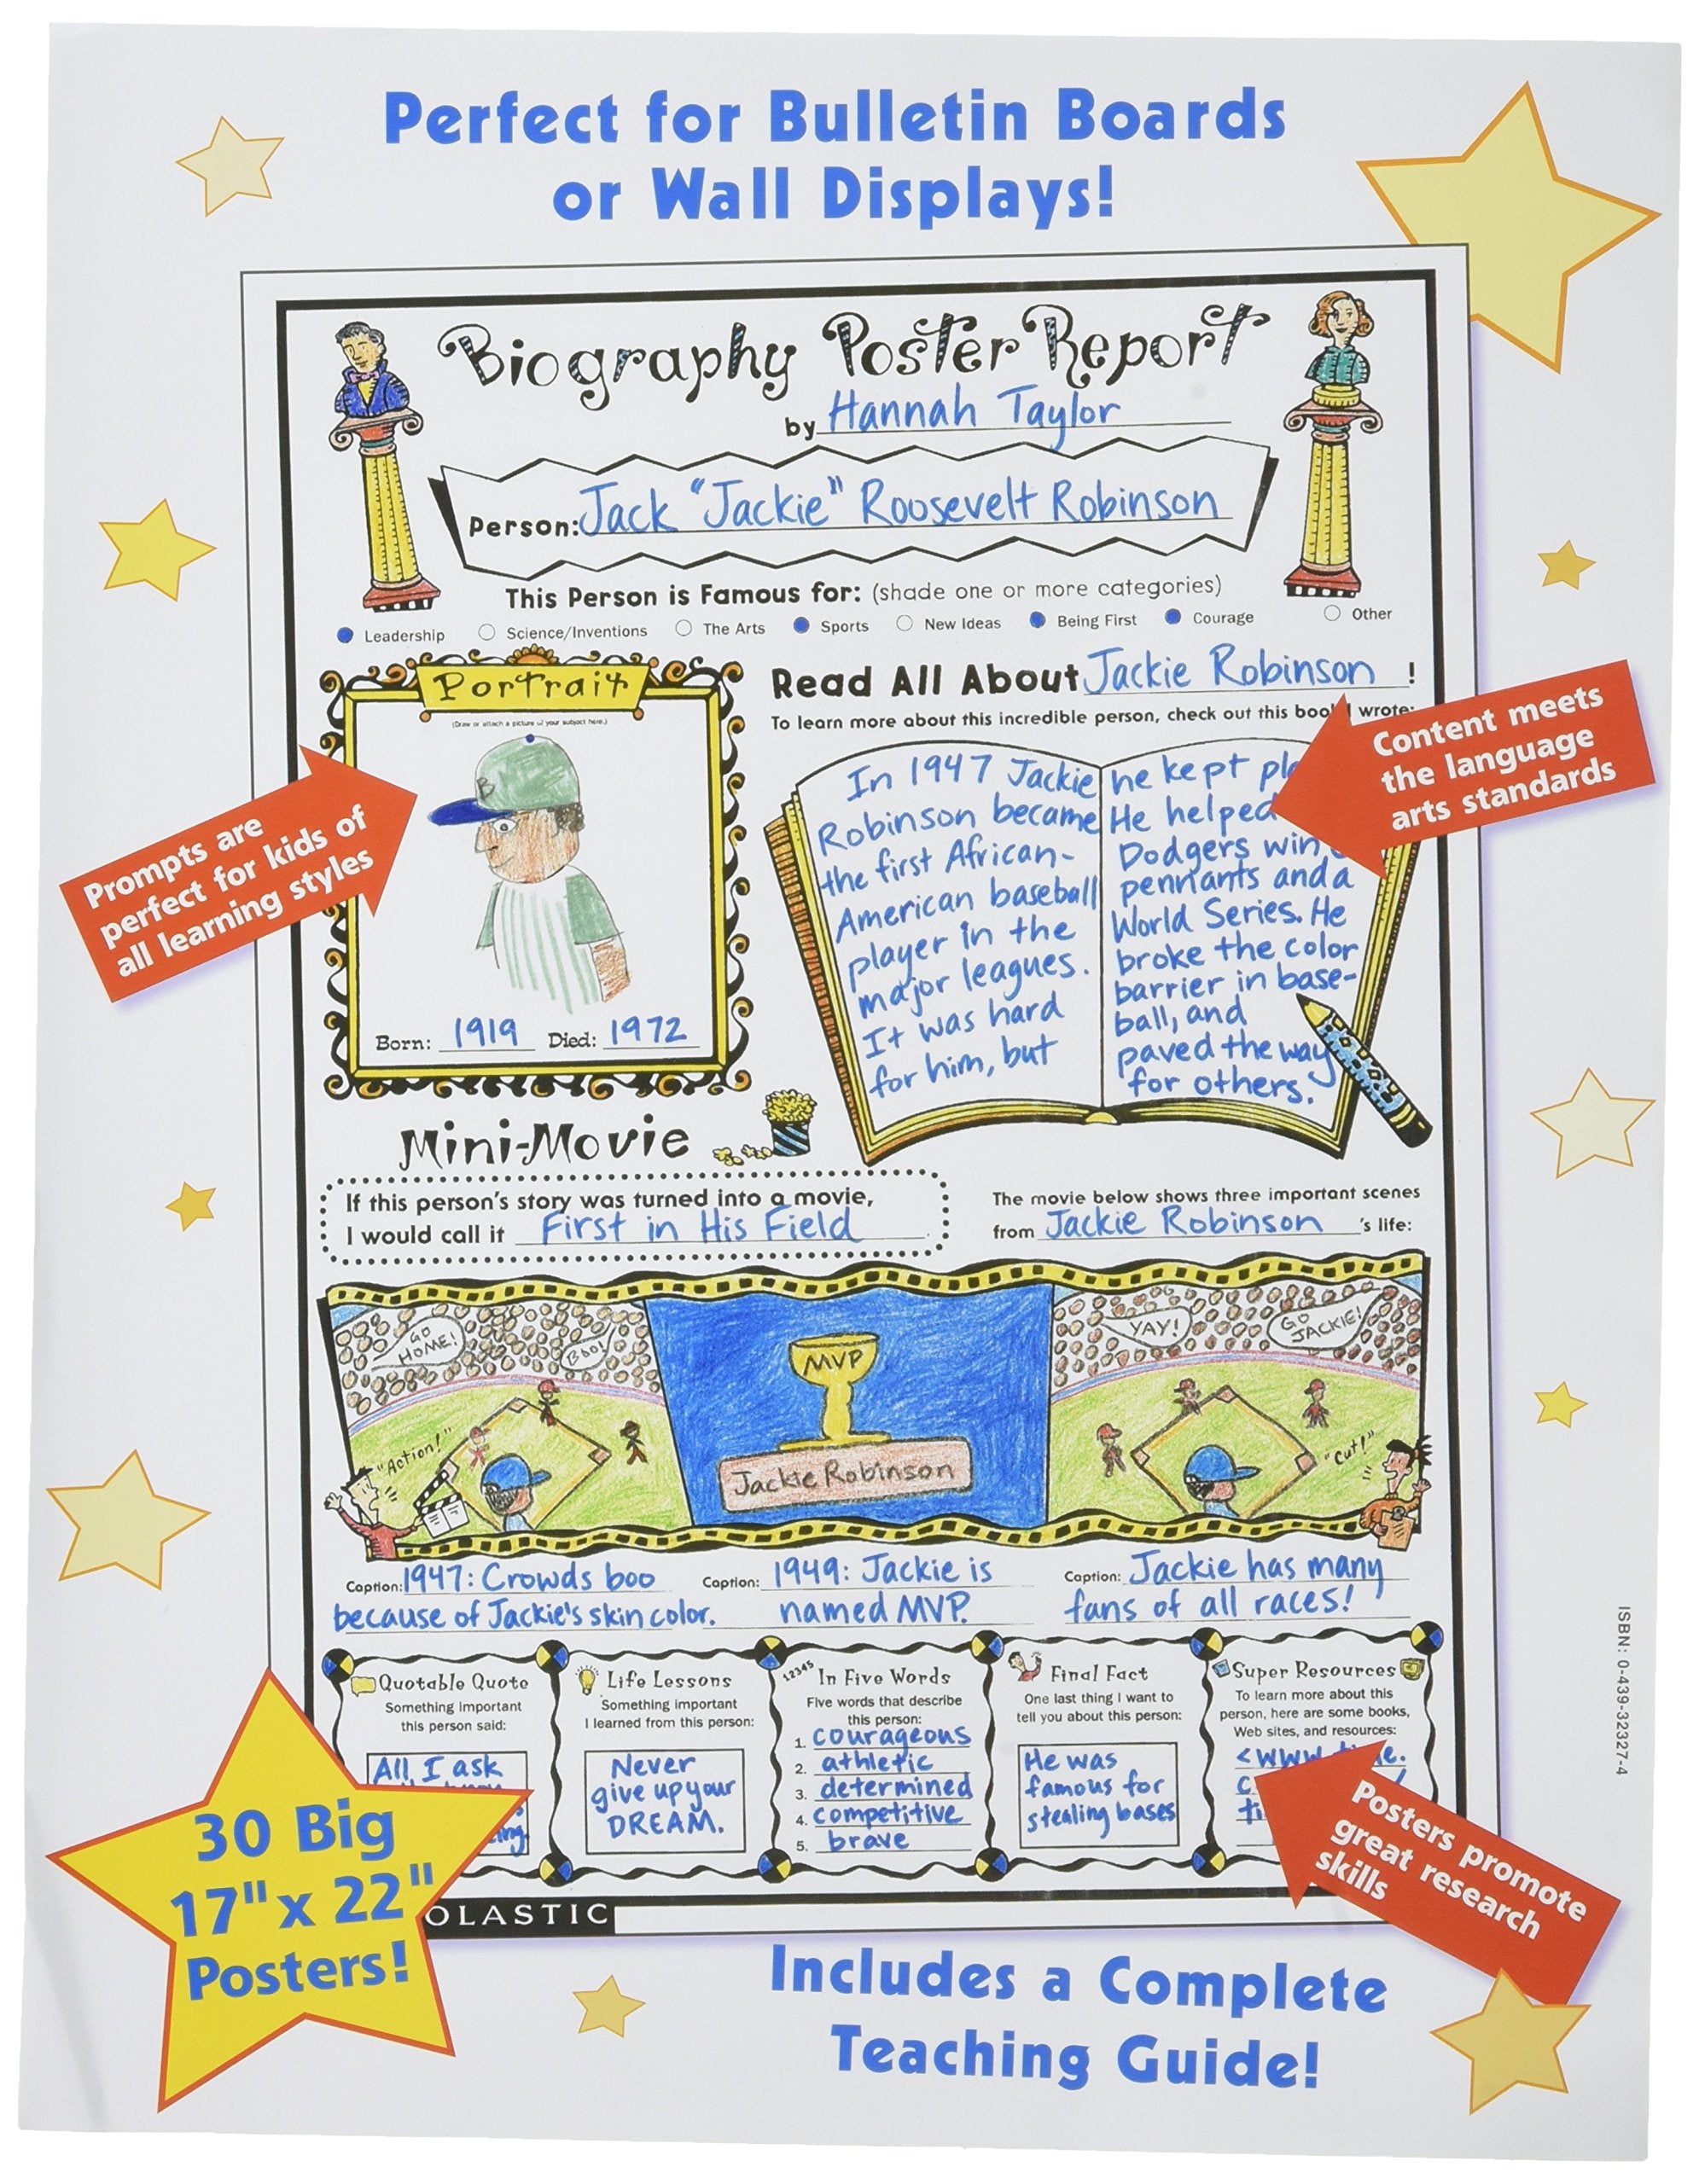 Perfect for Bulletin Boards
or Wall Displays!
Biography Poster Report
by Hannah Taylor
Person: Jack "Jackie" Roosevelt Robinson
This Person is Famous for: (shade one or more categories)
Leadership Science/Inventions The Arts Sports New Ideas Being First Courage Other
Portrait
(Draw or attach a picture of your subject here.)
B
Born: 1919 Died: 1972
Prompts are
perfect for kids of
all learning styles
Read All About Jackie Robinson !
To learn more about this incredible person, check out this book I wrote:
In 1947 Jackie
Robinson became
the first African-
American baseball
player in the
major leagues.
It was hard
for him, but
he kept
He helped
Dodgers win
pennants and a
World Series. He
broke the color
barrier in base-
ball, and
paved the way
for others.
Content meets
the language
arts standards
Mini-Movie
If this person's story was turned into a movie,
I would call it First in His Field
The movie below shows three important scenes
from Jackie Robinson 's life:
GO
HOME!
BOO!
"Action!"
MVP
Jackie Robinson
YAY!
GO
JACKIE!
"Cut!"
Caption: 1947: Crowds boo
because of Jackie's skin color.
Caption: 1949: Jackie is
named MVP.
Caption: Jackie has many
fans of all races!
Quotable Quote
Something important
this person said:
All I ask
Life Lessons
Something important
I learned from this person:
Never
give up your
DREAM.
12345
In Five Words
Five words that describe
this person:
1. courageous
2. athletic
3. determined
4. competitive
5. brave
Final Fact
One last thing I want to
tell you about this person:
He was
famous for
stealing bases
Super Resources
To learn more about this
person, here are some books,
Web sites, and resources:
<www.
Posters promote
great research
skills
30 Big
17" x 22"
Posters!
OLASTIC
Includes a Complete
Teaching Guide!
ISBN: 0-439-32327-4